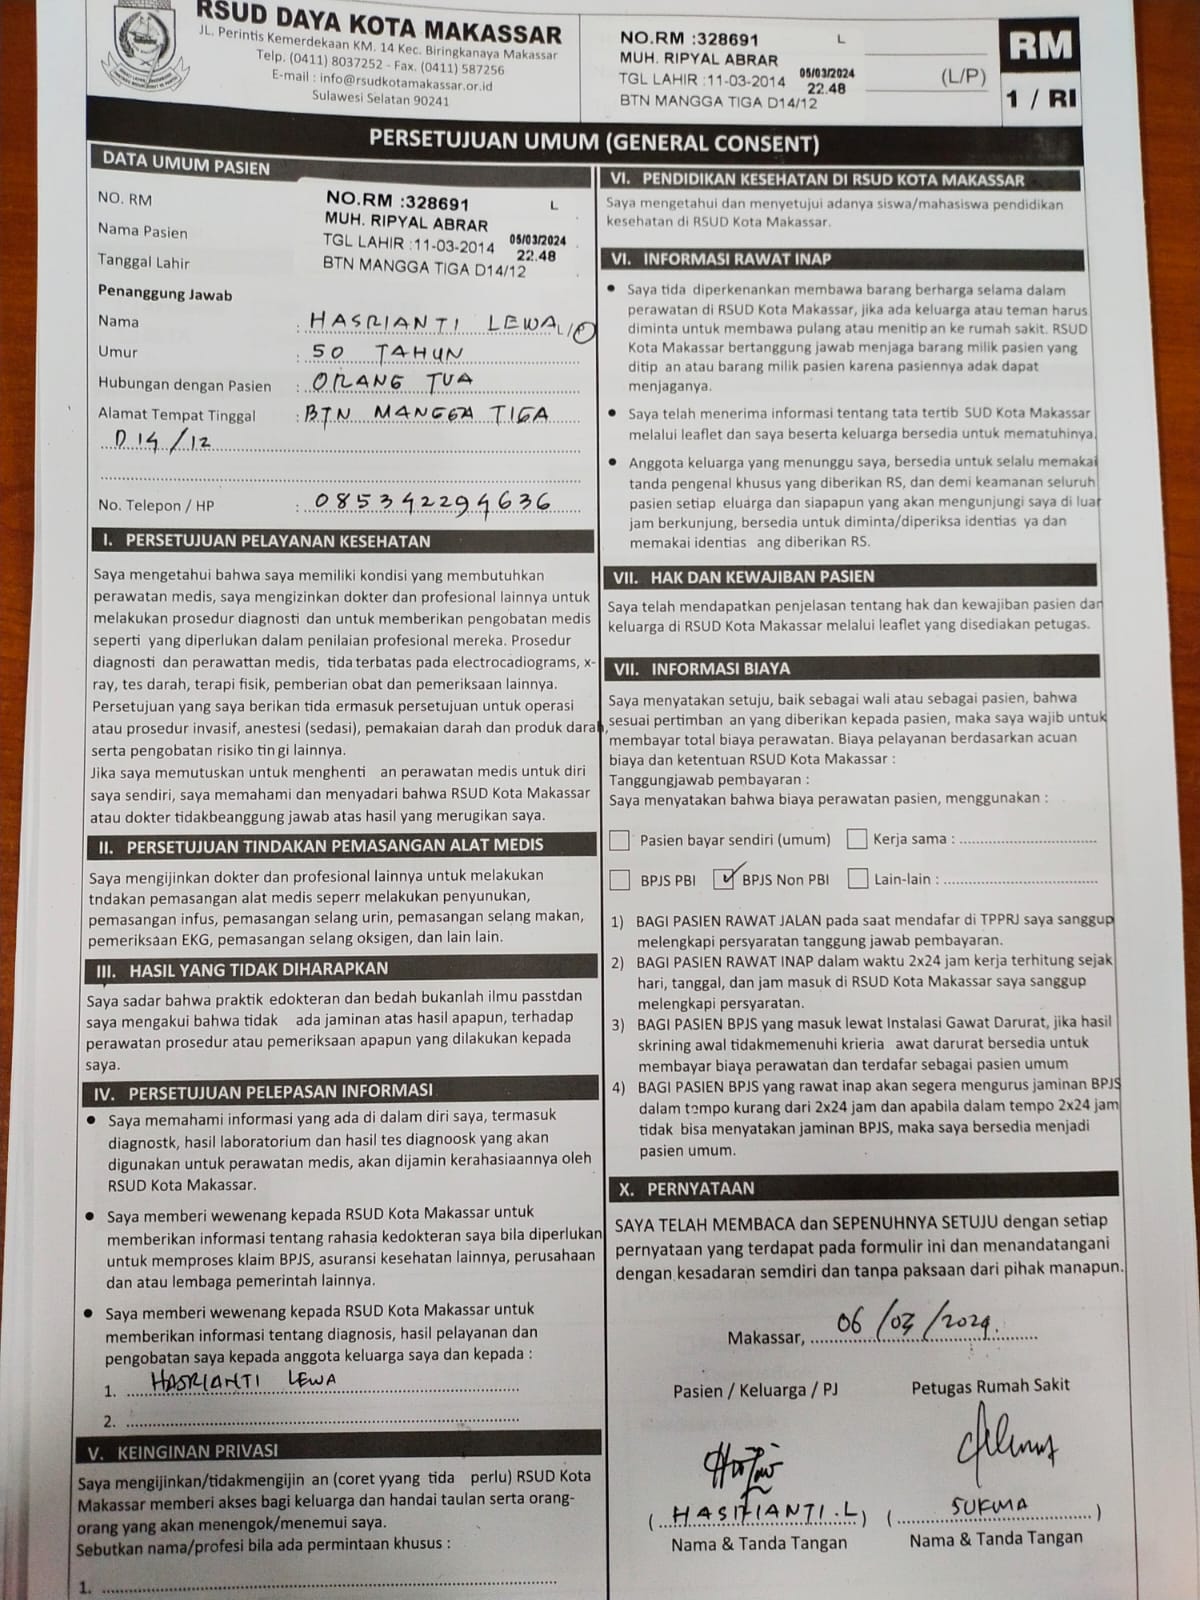 RSUD DAYA KOTA MAKASSAR
JL. Perintis Kemerdekaan KM. 14 Kec. Biringkanaya Makassar
Telp. (0411) 8037252 - Fax. (0411) 587256
E-mail : info@rsudkotamakassar.or.id
Sulawesi Selatan 90241
NO.RM :328691 L
MUH. RIPYAL ABRAR
TGL LAHIR :11-03-2014 05/03/2024 22.48
BTN MANGGA TIGA D14/12
(L/P)
RM
1 / RI
PERSETUJUAN UMUM (GENERAL CONSENT)
DATA UMUM PASIEN
NO. RM
Nama Pasien
Tanggal Lahir
NO.RM :328691 L
MUH. RIPYAL ABRAR
TGL LAHIR :11-03-2014 05/03/2024 22.48
BTN MANGGA TIGA D14/12
Penanggung Jawab
Nama : HASRIANTI LEWA L/P
Umur : 50 TAHUN
Hubungan dengan Pasien : ORANG TUA
Alamat Tempat Tinggal : BTN MANGGA TIGA
D 14/12
No. Telepon / HP : 085342294636
I. PERSETUJUAN PELAYANAN KESEHATAN
Saya mengetahui bahwa saya memiliki kondisi yang membutuhkan
perawatan medis, saya mengizinkan dokter dan profesional lainnya untuk
melakukan prosedur diagnosti dan untuk memberikan pengobatan medis
seperti yang diperlukan dalam penilaian profesional mereka. Prosedur
diagnosti dan perawattan medis, tida terbatas pada electrocadiograms, x-
ray, tes darah, terapi fisik, pemberian obat dan pemeriksaan lainnya.
Persetujuan yang saya berikan tida ermasuk persetujuan untuk operasi
atau prosedur invasif, anestesi (sedasi), pemakaian darah dan produk darah,
serta pengobatan risiko tingi lainnya.
Jika saya memutuskan untuk menghenti an perawatan medis untuk diri
saya sendiri, saya memahami dan menyadari bahwa RSUD Kota Makassar
atau dokter tidakbeanggung jawab atas hasil yang merugikan saya.
II. PERSETUJUAN TINDAKAN PEMASANGAN ALAT MEDIS
Saya mengijinkan dokter dan profesional lainnya untuk melakukan
tndakan pemasangan alat medis seperr melakukan penyunukan,
pemasangan infus, pemasangan selang urin, pemasangan selang makan,
pemeriksaan EKG, pemasangan selang oksigen, dan lain lain.
III. HASIL YANG TIDAK DIHARAPKAN
Saya sadar bahwa praktik edokteran dan bedah bukanlah ilmu passtdan
saya mengakui bahwa tidak ada jaminan atas hasil apapun, terhadap
perawatan prosedur atau pemeriksaan apapun yang dilakukan kepada
saya.
IV. PERSETUJUAN PELEPASAN INFORMASI
• Saya memahami informasi yang ada di dalam diri saya, termasuk
diagnostk, hasil laboratorium dan hasil tes diagnoosk yang akan
digunakan untuk perawatan medis, akan dijamin kerahasiaannya oleh
RSUD Kota Makassar.
• Saya memberi wewenang kepada RSUD Kota Makassar untuk
memberikan informasi tentang rahasia kedokteran saya bila diperlukan
untuk memproses klaim BPJS, asuransi kesehatan lainnya, perusahaan
dan atau lembaga pemerintah lainnya.
• Saya memberi wewenang kepada RSUD Kota Makassar untuk
memberikan informasi tentang diagnosis, hasil pelayanan dan
pengobatan saya kepada anggota keluarga saya dan kepada :
1. HASRIANTI LEWA
2.
V. KEINGINAN PRIVASI
Saya mengijinkan/tidakmengijin an (coret yyang tida perlu) RSUD Kota
Makassar memberi akses bagi keluarga dan handai taulan serta orang-
orang yang akan menengok/menemui saya.
Sebutkan nama/profesi bila ada permintaan khusus :
1.
VI. PENDIDIKAN KESEHATAN DI RSUD KOTA MAKASSAR
Saya mengetahui dan menyetujui adanya siswa/mahasiswa pendidikan
kesehatan di RSUD Kota Makassar.
VI. INFORMASI RAWAT INAP
• Saya tida diperkenankan membawa barang berharga selama dalam
perawatan di RSUD Kota Makassar, jika ada keluarga atau teman harus
diminta untuk membawa pulang atau menitip an ke rumah sakit. RSUD
Kota Makassar bertanggung jawab menjaga barang milik pasien yang
ditip an atau barang milik pasien karena pasiennya adak dapat
menjaganya.
• Saya telah menerima informasi tentang tata tertib SUD Kota Makassar
melalui leaflet dan saya beserta keluarga bersedia untuk mematuhinya.
• Anggota keluarga yang menunggu saya, bersedia untuk selalu memakai
tanda pengenal khusus yang diberikan RS, dan demi keamanan seluruh
pasien setiap eluarga dan siapapun yang akan mengunjungi saya di luar
jam berkunjung, bersedia untuk diminta/diperiksa identias ya dan
memakai identias ang diberikan RS.
VII. HAK DAN KEWAJIBAN PASIEN
Saya telah mendapatkan penjelasan tentang hak dan kewajiban pasien dan
keluarga di RSUD Kota Makassar melalui leaflet yang disediakan petugas.
VII. INFORMASI BIAYA
Saya menyatakan setuju, baik sebagai wali atau sebagai pasien, bahwa
sesuai pertimban an yang diberikan kepada pasien, maka saya wajib untuk
membayar total biaya perawatan. Biaya pelayanan berdasarkan acuan
biaya dan ketentuan RSUD Kota Makassar :
Tanggungjawab pembayaran :
Saya menyatakan bahwa biaya perawatan pasien, menggunakan :
Pasien bayar sendiri (umum) Kerja sama :
BPJS PBI ✓ BPJS Non PBI Lain-lain :
1) BAGI PASIEN RAWAT JALAN pada saat mendafar di TPPRJ saya sanggup
melengkapi persyaratan tanggung jawab pembayaran.
2) BAGI PASIEN RAWAT INAP dalam waktu 2x24 jam kerja terhitung sejak
hari, tanggal, dan jam masuk di RSUD Kota Makassar saya sanggup
melengkapi persyaratan.
3) BAGI PASIEN BPJS yang masuk lewat Instalasi Gawat Darurat, jika hasil
skrining awal tidakmemenuhi krieria awat darurat bersedia untuk
membayar biaya perawatan dan terdafar sebagai pasien umum
4) BAGI PASIEN BPJS yang rawat inap akan segera mengurus jaminan BPJS
dalam tempo kurang dari 2x24 jam dan apabila dalam tempo 2x24 jam
tidak bisa menyatakan jaminan BPJS, maka saya bersedia menjadi
pasien umum.
X. PERNYATAAN
SAYA TELAH MEMBACA dan SEPENUHNYA SETUJU dengan setiap
pernyataan yang terdapat pada formulir ini dan menandatangani
dengan kesadaran semdiri dan tanpa paksaan dari pihak manapun.
Makassar, 06/03/2024.
Pasien / Keluarga / PJ Petugas Rumah Sakit
( HASRIANTI.L ) ( SUKMA )
Nama & Tanda Tangan Nama & Tanda Tangan